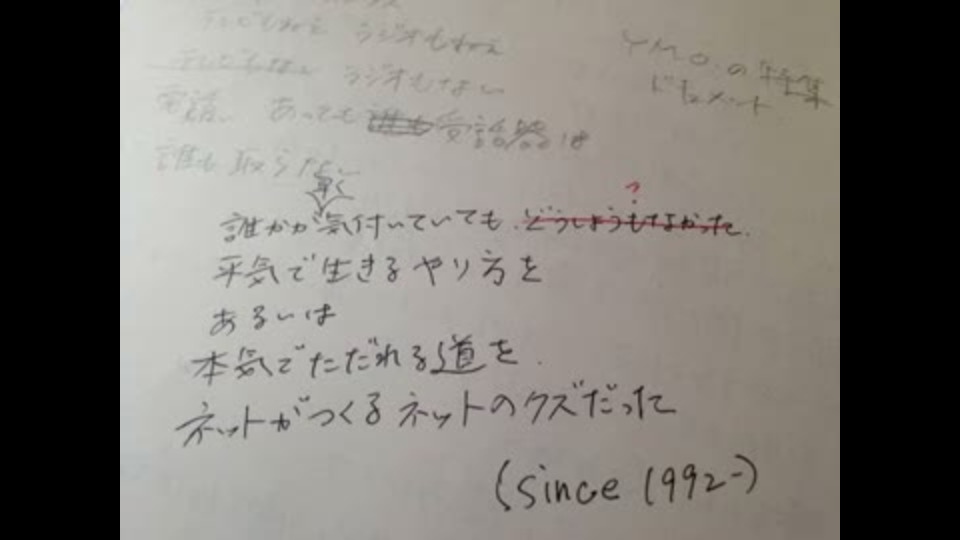 テレビもねぇ ラジオもねぇ
テレビもない ラジオもない
YMO.の
ドキュメント
電話、あっても 誰も 受話器は
誰も取らない
早く
誰かが気付いていても どうしようもなかった.
?
平気で生きるやり方を
あるいは
本気でただれる道を.
ネットがつくるネットのクズだった
(since 1992-)